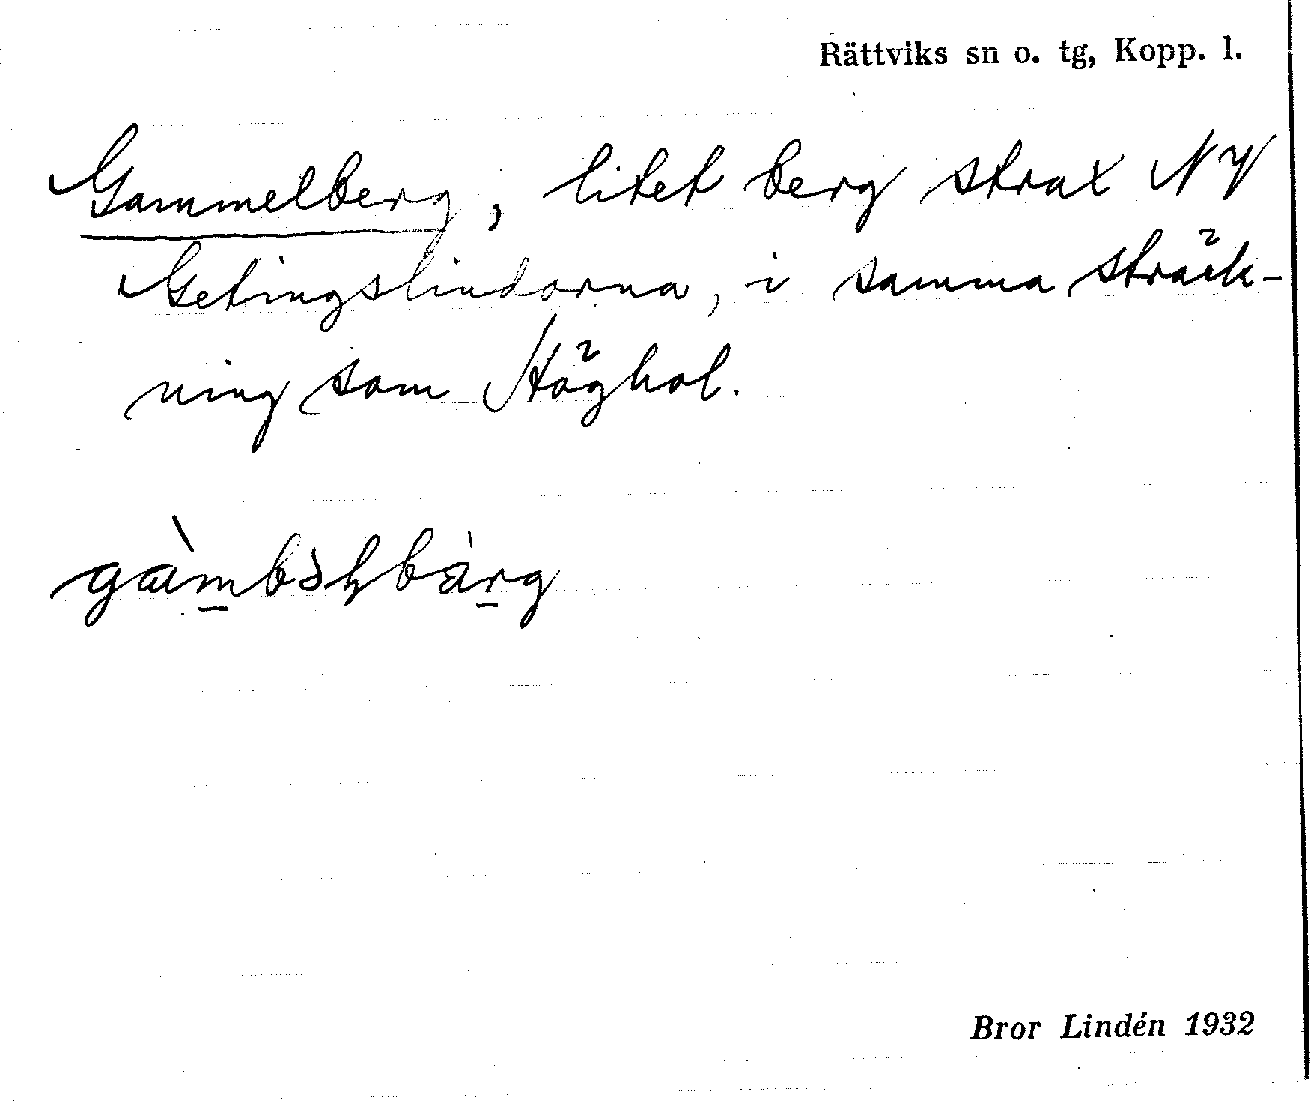 Rättviks sn o. tg, Kopp. l.
Gammelberg, litet berg strax NV
Getingslindorna, i samma sträck-
ning som Höghol.
gàmbə̀ɫbàrg
Bror Lindén 1932